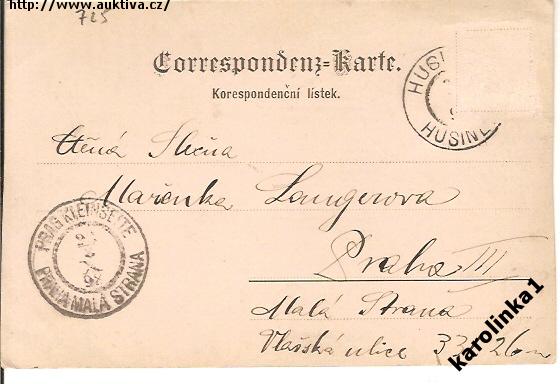 http://www.auktiva.cz/
725
Correspondenz-Karte.
Korespondenční lístek.
HUSINEC
HUSINEC
Ctěná Slečna
Mařenka Langerova
Praha III
Malá Strana
Vlašská ulice
PRAG KLEINSEITE
PRAHA MALÁ STRANA
karolinka1